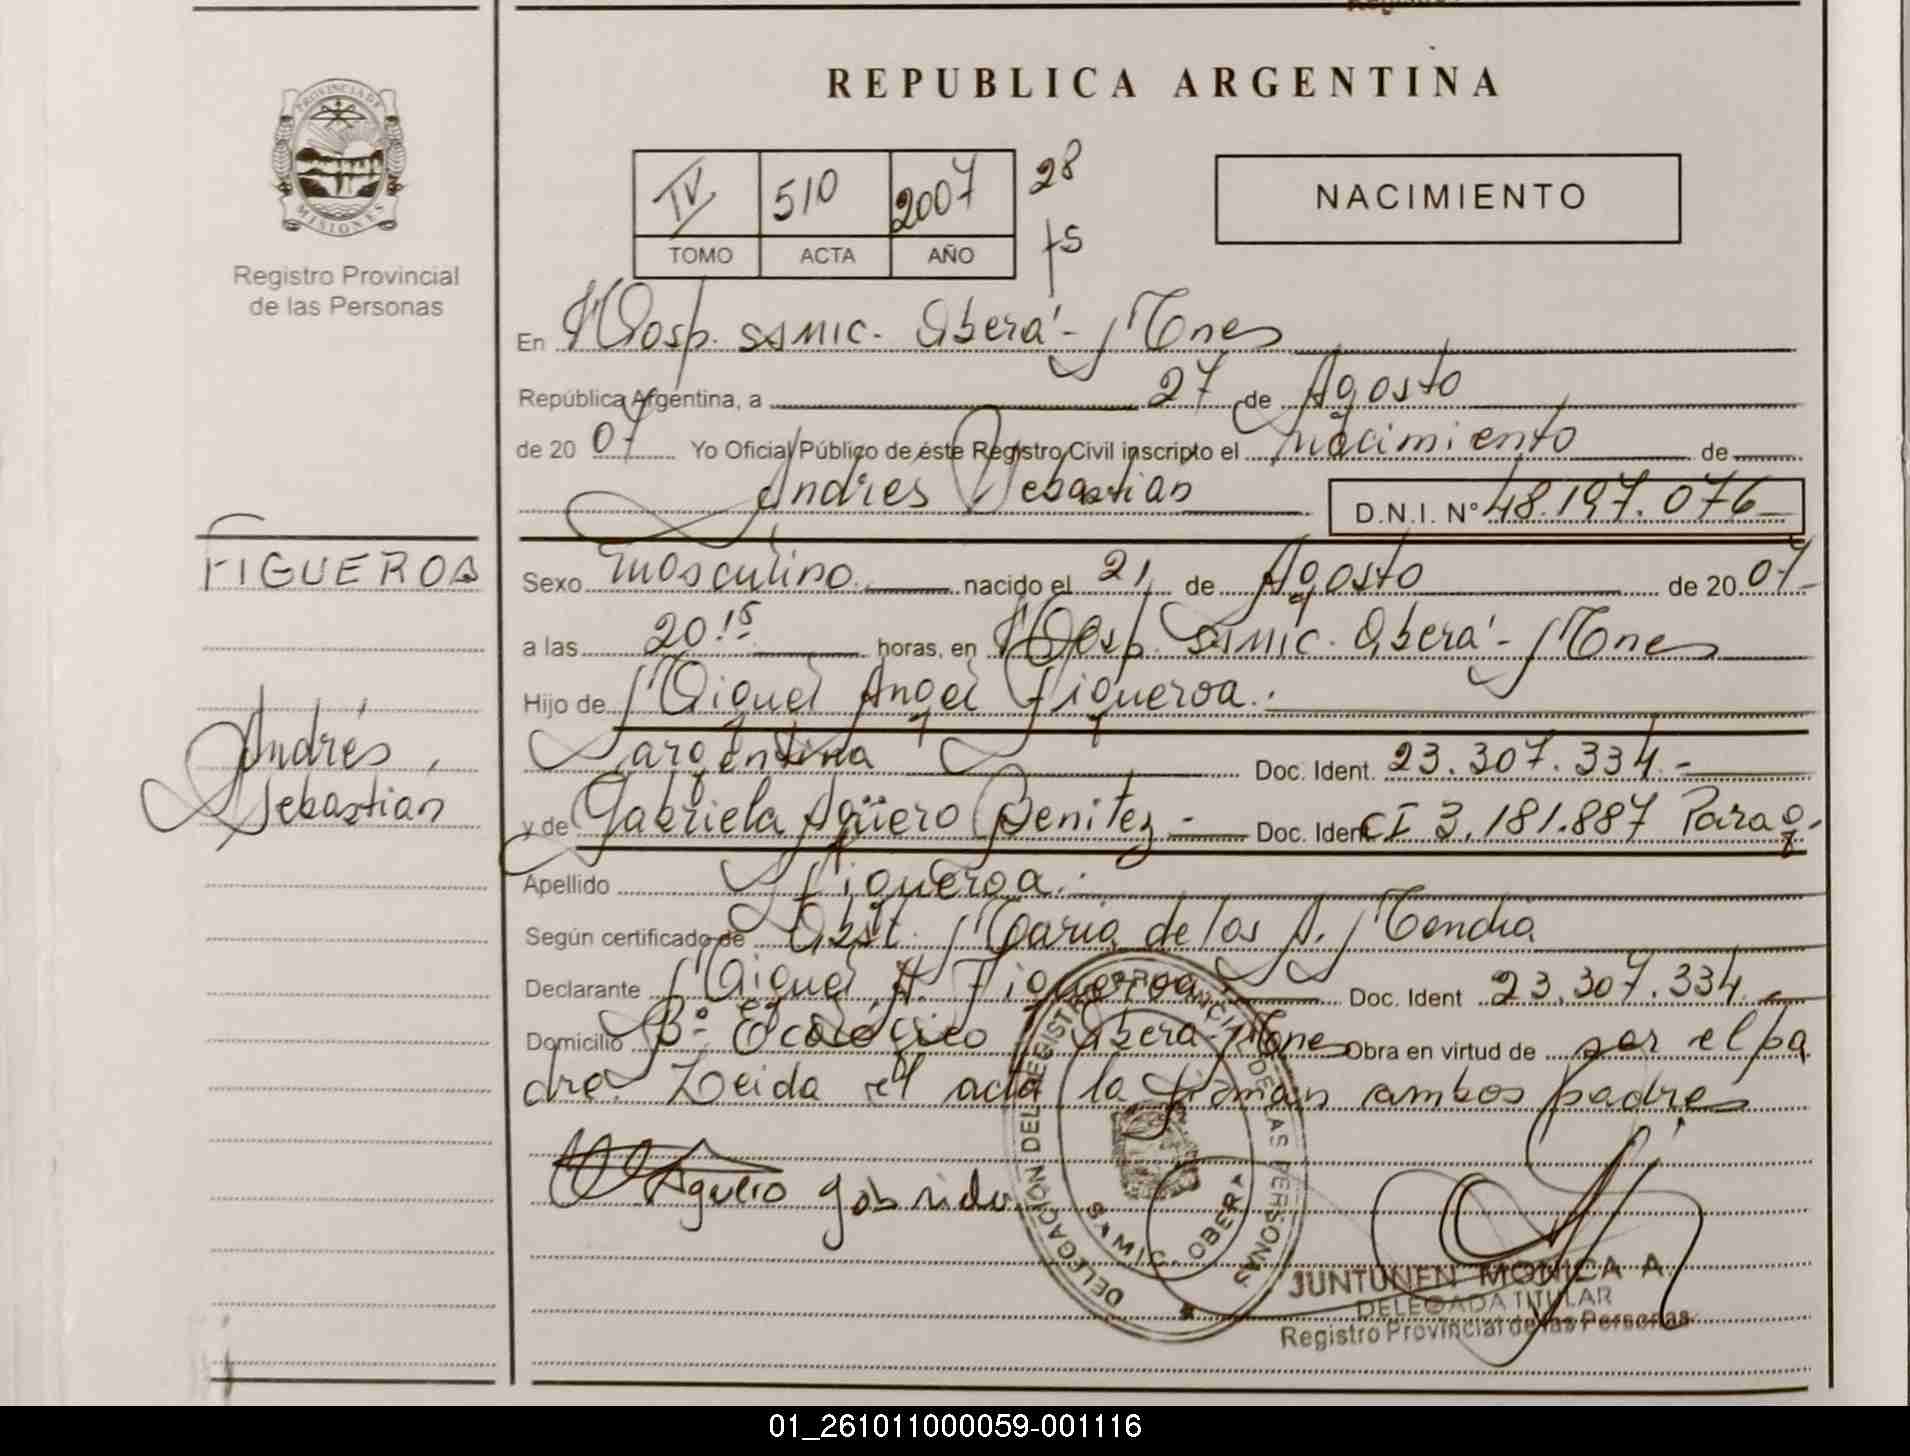 REPUBLICA ARGENTINA
PROVINCIA DE
MISIONES
Registro Provincial
de las Personas
IV 510 2007 28
TOMO ACTA AÑO fs
NACIMIENTO
En Hosp. SAMIC. Oberá - Mnes
República Argentina, a 27 de Agosto
de 2007 Yo Oficial Público de éste Registro Civil inscripto el nacimiento de
Andrés Sebastian D.N.I. N° 48.197.076
FIGUEROA
Sexo masculino nacido el 21 de Agosto de 2007
a las 20.15 horas, en Hosp. SAMIC. Oberá - Mnes
Hijo de Miguel Angel Figueroa.
Andrés
Sebastian
argentina Doc. Ident. 23.307.334.-
y de Gabriela Agüero Benitez - Doc. Ident CI 3.181.887 Parag.
Apellido Figueroa.
Según certificado de Obst. Maria de los A.
Declarante Miguel A. Figueroa Doc. Ident 23.307.334.-
Domicilio B° Ecológico Oberá - Mnes Obra en virtud de ser el pa
dre. Leida el acta la firman ambos padres
Aguero
DELEGACIÓN DEL REGISTRO PROVINCIAL DE LAS PERSONAS
SAMIC. OBERA
JUNTUNEN MONICA A.
DELEGADA TITULAR
Registro Provincial de las Personas
01_261011000059-001116